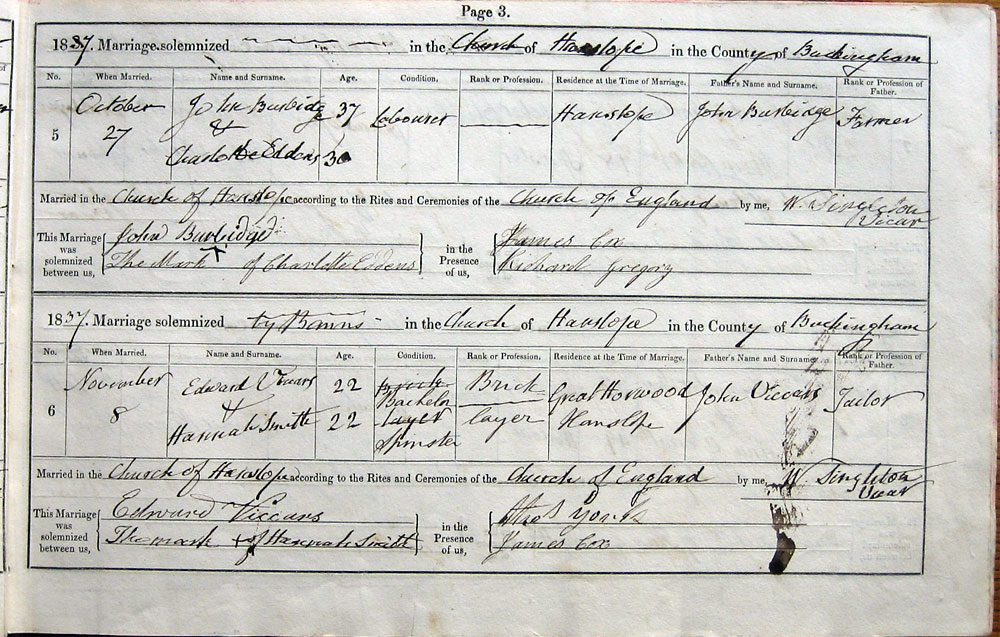 Page 3.
1837. Marriage solemnized in the Church of Hanslope in the County of Buckingham
No. When Married. Name and Surname. Age. Condition. Rank or Profession. Residence at the Time of Marriage. Father's Name and Surname. Rank or Profession of Father.
5 October 27 John Burbidge 37 Labourer Hanslope John Burbidge Farmer
&
Charlotte Eddens 30
Married in the Church of Hanslope according to the Rites and Ceremonies of the Church of England by me, W. Singleton Vicar
This Marriage was solemnized between us, John Burbidge
The Mark X of Charlotte Eddens
in the Presence of us, James Cox
Richard Gregory
1837. Marriage solemnized by Banns in the Church of Hanslope in the County of Buckingham
No. When Married. Name and Surname. Age. Condition. Rank or Profession. Residence at the Time of Marriage. Father's Name and Surname. Rank or Profession of Father.
6 November 8 Edward Viccars 22 Brick Bachelor Brick Great Horwood John Viccars Tailor
&
Hannah Smith 22 layer Spinster layer Hanslope
Married in the Church of Hanslope according to the Rites and Ceremonies of the Church of England by me, W. Singleton Vicar
This Marriage was solemnized between us, Edward Viccars
The mark + of Hannah Smith
in the Presence of us, Thos York
James Cox